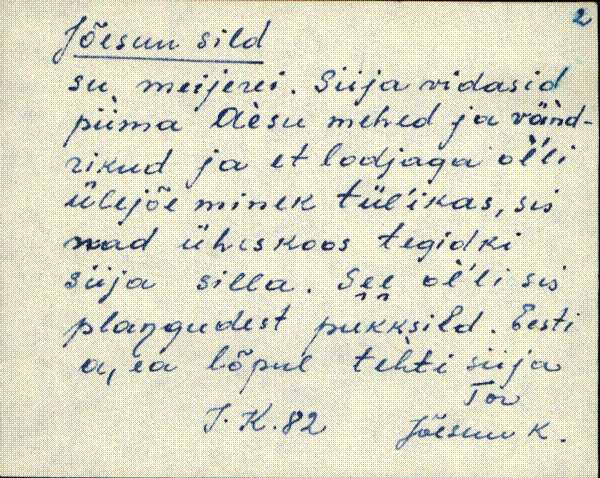 2
Jõesuu sild
su meijerei. Siija vidasid
piima Aèsu mehed ja vänd-
rikud ja et lodjaga òl'li
ülejõe minek tül'ikas, sis
nad üheskoos tegidki
siija silla. See òl'li sis
plaŋgudest pukksild. Eesti
a, ea lõpul tehti siija
Tor
J. K. 82 Jõesuu k.